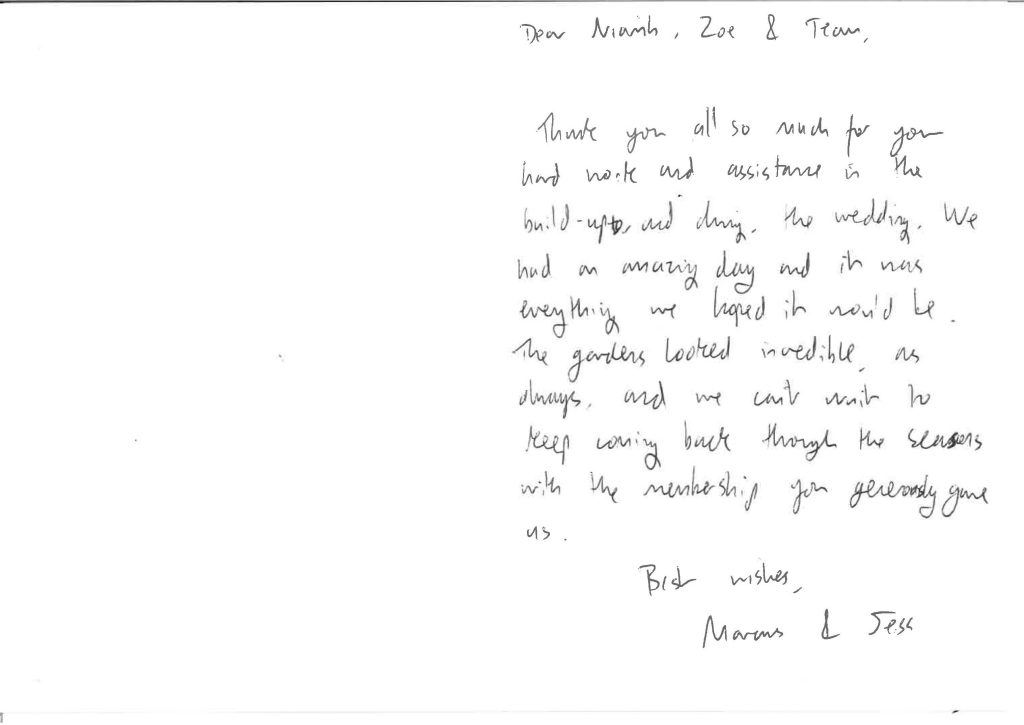 Dear Niamh, Zoe & Team,
Thank you all so much for your
hard work and assistance in the
build-up to, and during, the wedding. We
had an amazing day and it was
everything we hoped it would be.
The gardens looked incredible, as
always, and we can't wait to
keep coming back through the seasons
with the membership you generously gave
us.
Best wishes,
Marcus & Jess